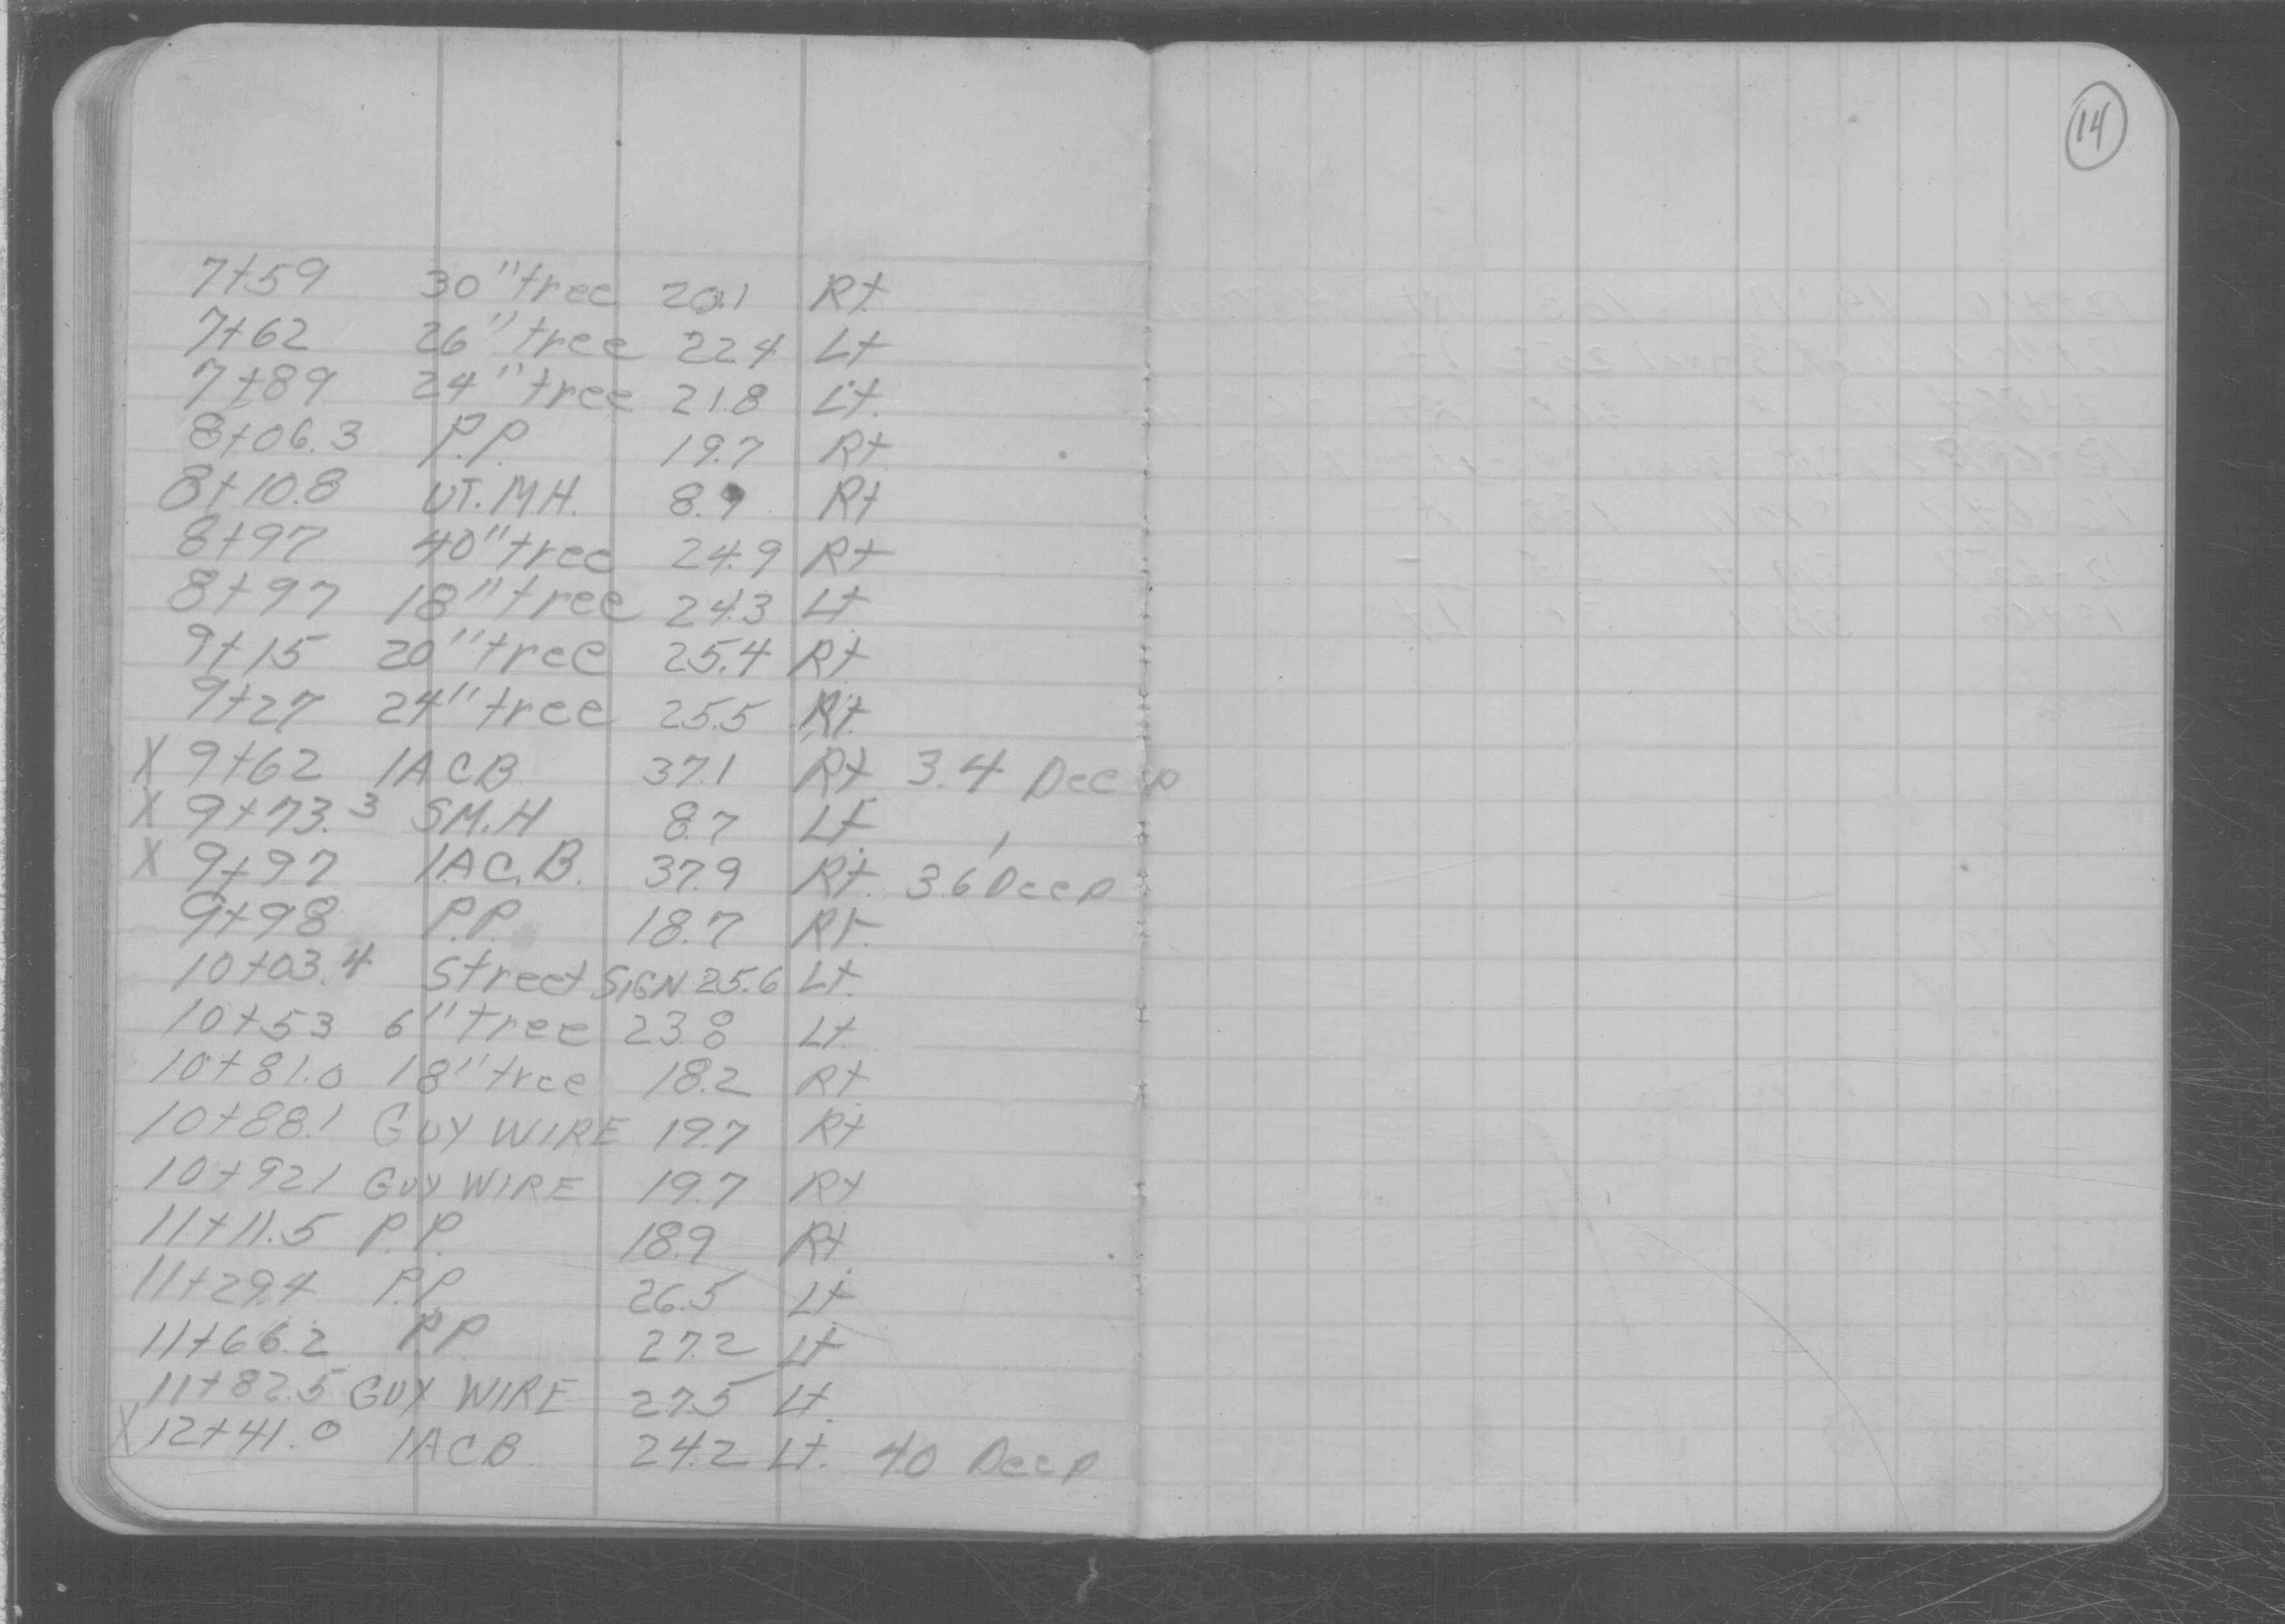 14
7+59 30" tree 20.1 Rt.
7+62 26" tree 22.4 Lt
7+89 24" tree 21.8 Lt.
8+06.3 P.P. 19.7 Rt.
8+10.8 UT. M.H. 8.9 Rt
8+97 40" tree 24.9 Rt
8+97 18" tree 24.3 Lt.
9+15 20" tree 25.4 Rt.
9+27 24" tree 25.5 Rt.
X 9+62 1A C.B. 37.1 Rt 3.4 Deep
X 9+73.3 S.M.H 8.7 Lt.
X 9+97 1A C.B. 37.9 Rt. 3.6' Deep
9+98 P.P. 18.7 Rt.
10+03.4 Street SIGN 25.6 Lt.
10+53 6" tree 23.8 Lt.
10+81.0 18" tree 18.2 Rt.
10+88.1 GUY WIRE 19.7 Rt
10+92.1 GUY WIRE 19.7 Rt
11+11.5 P.P. 18.9 Rt.
11+29.4 P.P. 26.5 Lt.
11+66.2 P.P. 27.2 Lt
11+82.5 GUY WIRE 27.5 Lt.
X 12+41.0 1A C.B. 24.2 Lt. 4.0 Deep